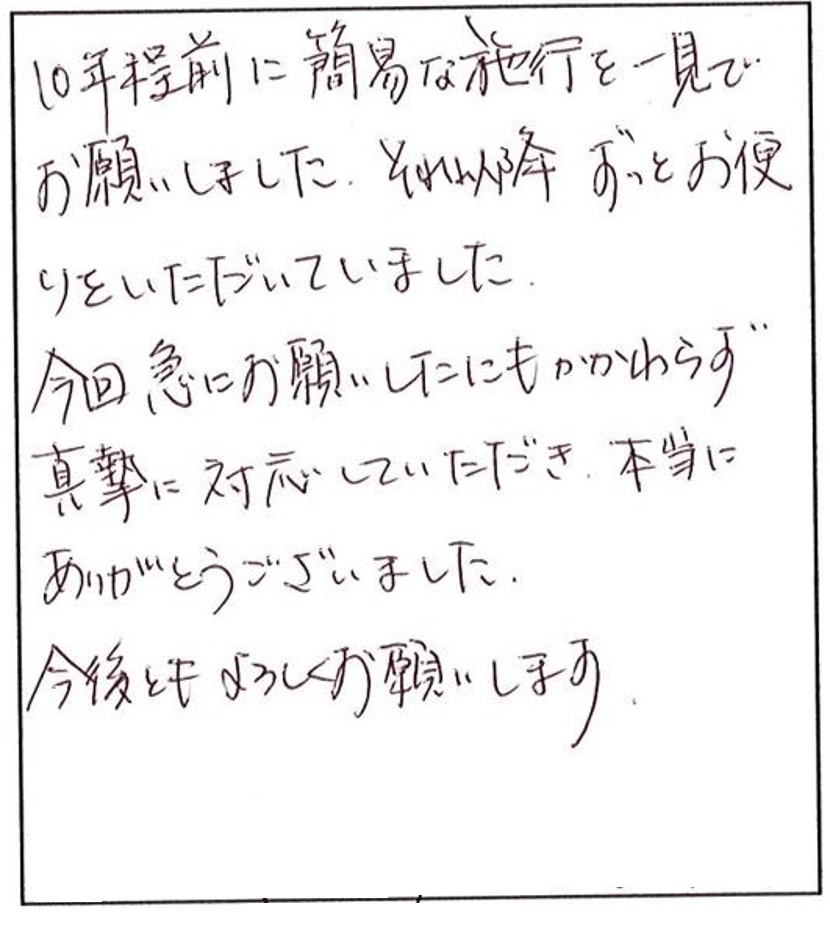 10年程前に簡易な施行を一見で
お願いしました. それ以降 ずっとお便
りをいただいていました.
今回 急にお願いしたにもかかわらず
真摯に 対応していただき. 本当に
ありがとうございました.
今後とも よろしくお願いします.